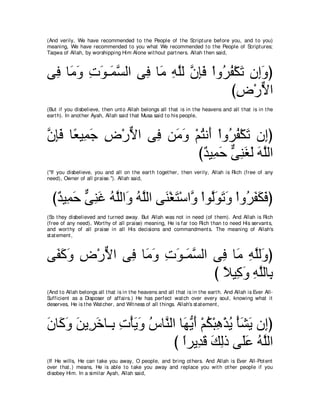 (And verily, We have recommended to the People of the Scripture before you, and to you)
meaning, We have recommended to you what We recommended to the People of Scriptures;
Taqwa of Allah, by worshipping Him Alone without partners. Allah then said,
وَإِن تَكْفُرُواْ فَإِنَّ لِلَّهِ مَا فِى السَّمَـوَتِ وَمَا فِى
الاٌّرْضِ)
(But if you disbelieve, then unto Allah belongs all that is in the heavens and all that is in the
earth). In another Ayah, Allah said that Musa said to his people,
إِن تَكْفُرُواْ أَنتُمْ وَمَن فِى الاٌّرْضِ جَمِيعًا فَإِنَّ
اللَّهَ لَغَنِىٌّ حَمِيدٌ)
("If you disbelieve, you and all on the earth together, then verily, Allah is Rich (free of any
need), Owner of all praise."). Allah said,
فَكَفَرُواْ وَتَوَلَّواْ وَّاسْتَغْنَى اللَّهُ وَاللَّهُ غَنِىٌّ حَمِيدٌ)
(So they disbelieved and turned away. But Allah was not in need (of them). And Allah is Rich
(free of any need), Worthy of all praise) meaning, He is far too Rich than to need His servants,
and worthy of all praise in all His decisions and commandments. The meaning of Allah's
statement,
وَللَّهِ مَا فِى السَّمَـوَتِ وَمَا فِى الاٌّرْضِ وَكَفَى
بِاللَّهِ وَكِيلاً )
(And to Allah belongs all that is in the heavens and all that is in the earth. And Allah is Ever All-
Sufficient as a Disposer of affairs.) He has perfect watch over every soul, knowing what it
deserves, He is the Watcher, and Witness of all things. Allah's statement,
إِن يَشَأْ يُذْهِبْكُمْ أَيُّهَا النَّاسُ وَيَأْتِ بِـاخَرِينَ وَكَانَ
اللَّهُ عَلَى ذلِكَ قَدِيراً )
(If He wills, He can take you away, O people, and bring others. And Allah is Ever All-Potent
over that.) means, He is able to take you away and replace you with other people if you
disobey Him. In a similar Ayah, Allah said,